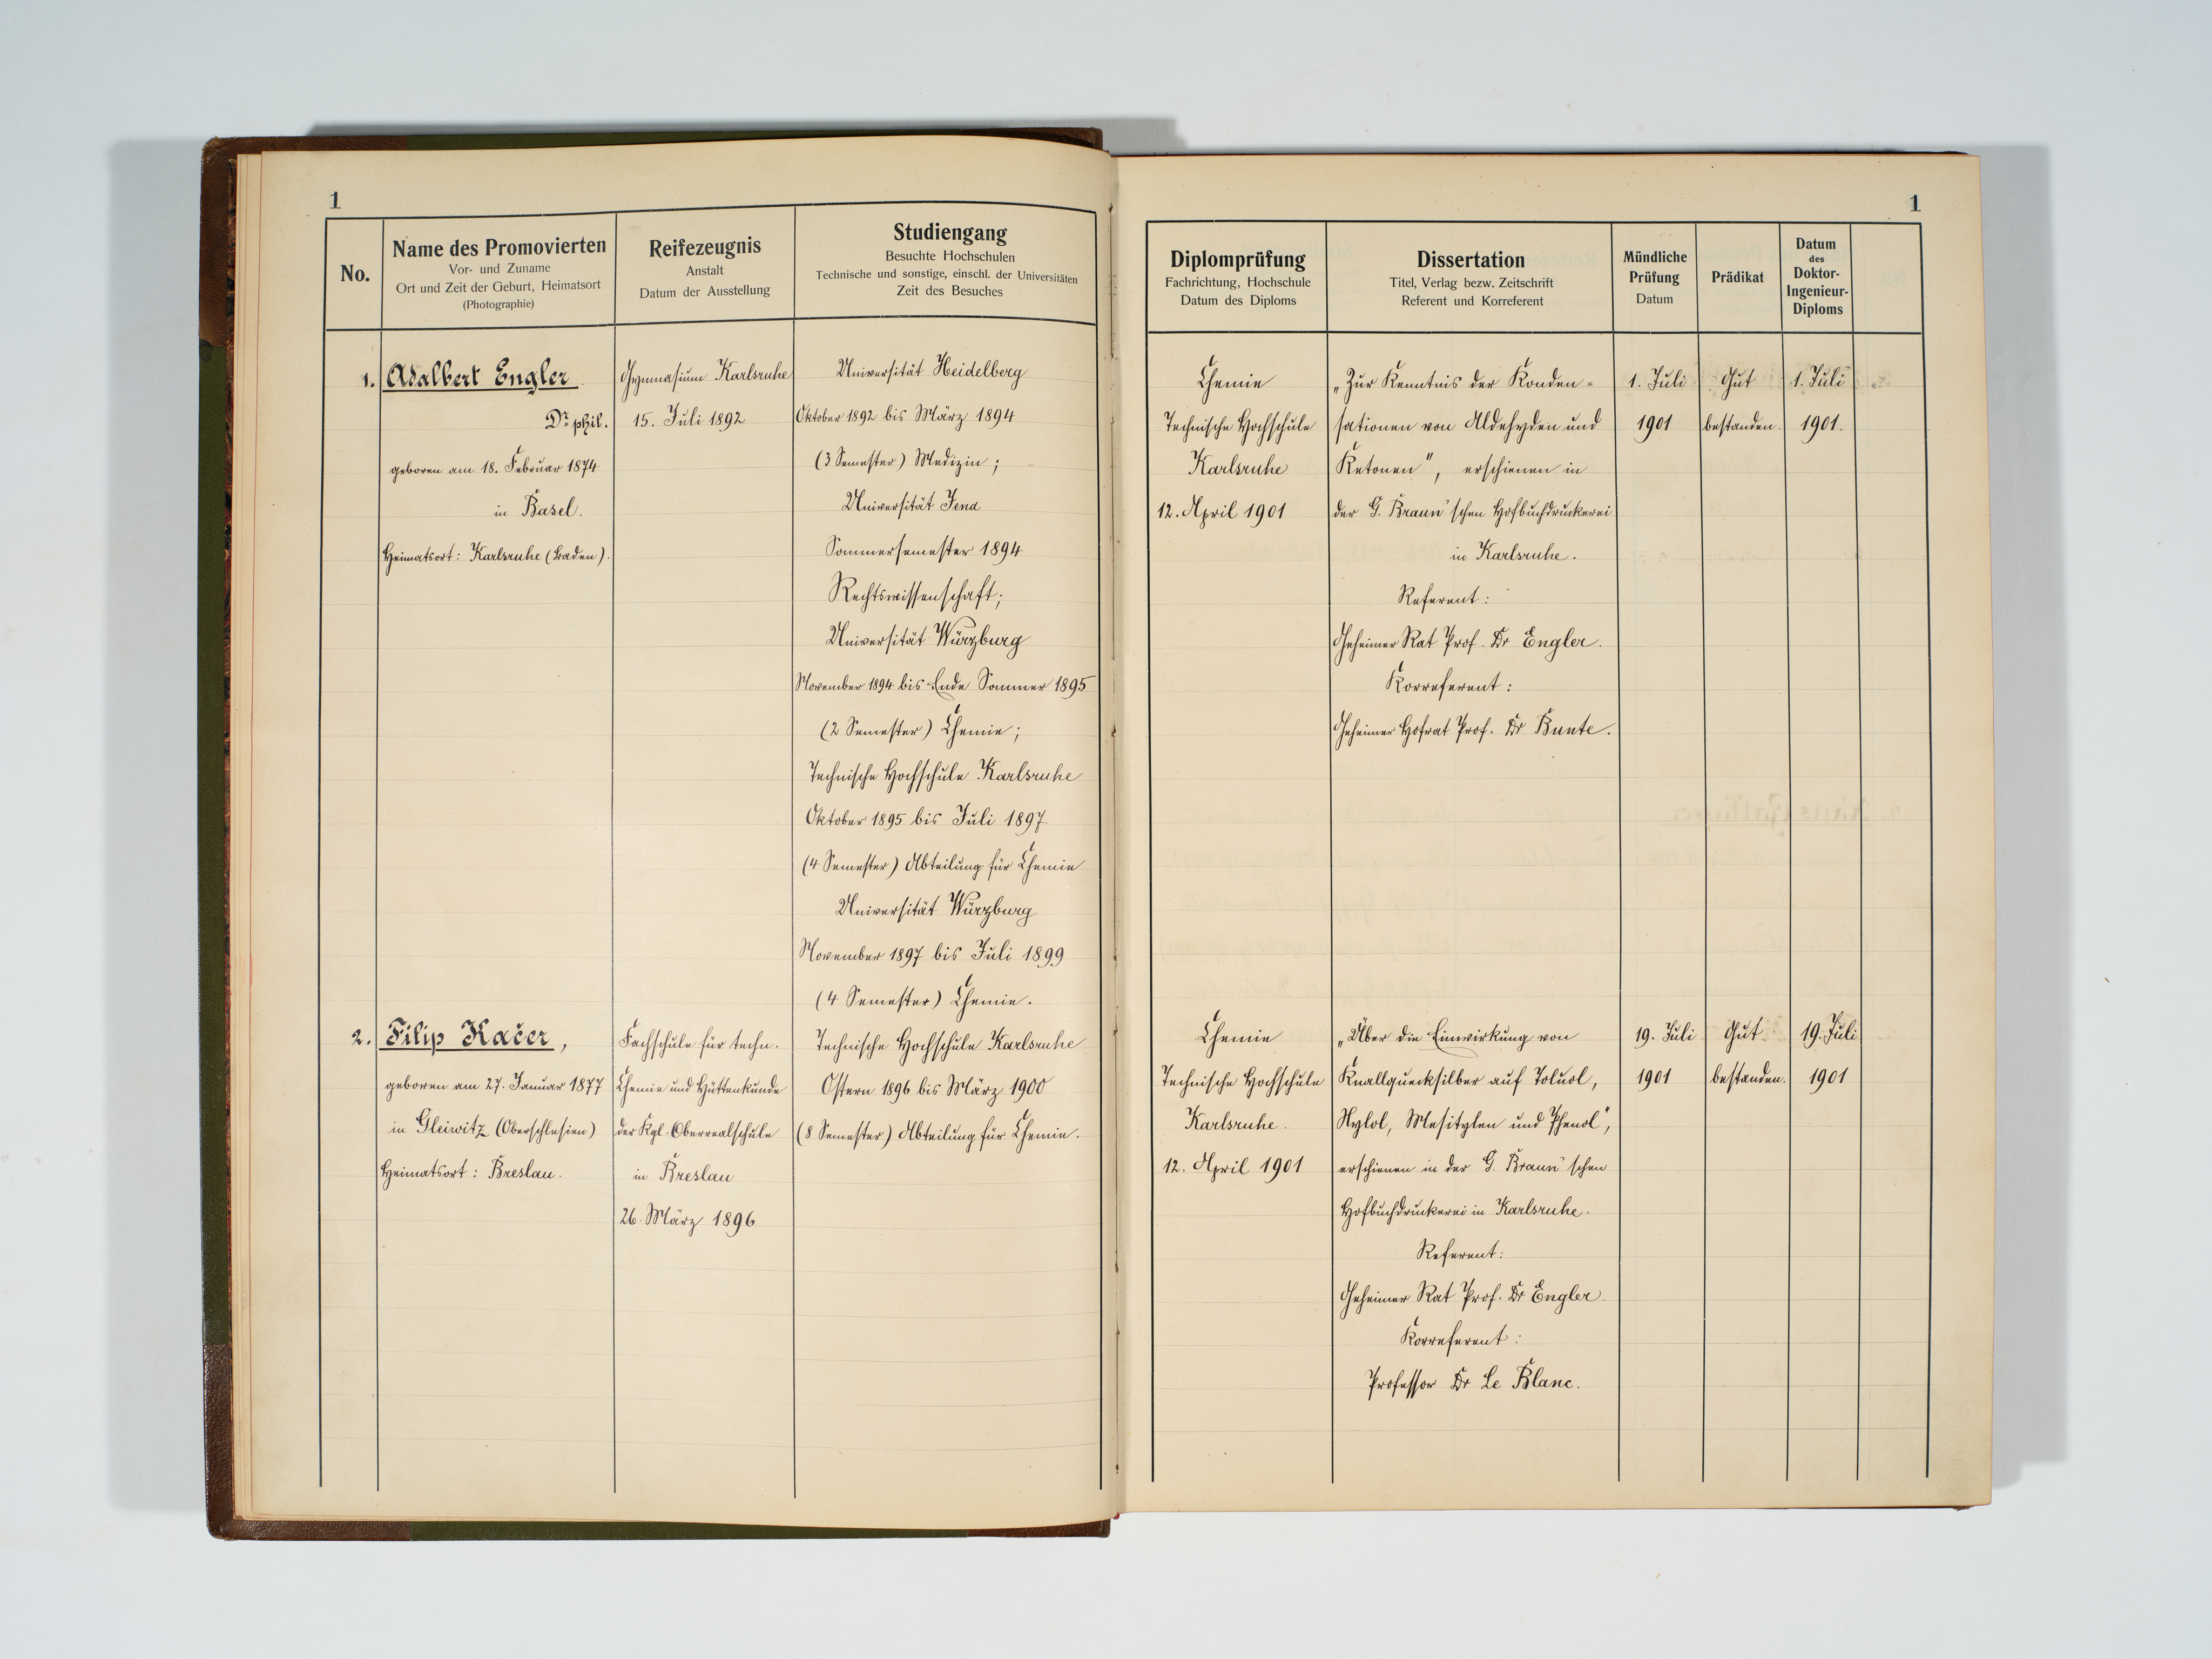 1
No.
Name des Promovierten
Vor- und Zuname
Ort und Zeit der Geburt, Heimatsort
(Photographie)
Reifezeugnis
Anstalt
Datum der Ausstellung
Studiengang
Besuchte Hochschulen
Technische und sonstige, einschl. der Universitäten
Zeit des Besuches
1.
Adalbert Engler
Dr. phil.
geboren am 18. Februar 1874
in Basel.
Heimatsort: Karlsruhe (Baden).
Gymnasium Karlsruhe
15. Juli 1892
Universität Heidelberg
Oktober 1892 bis März 1894
(3 Semester) Medizin;
Universität Jena
Sommersemester 1894
Rechtswissenschaft;
Universität Würzburg
November 1894 bis Ende Sommer 1895
(2 Semester) Chemie;
Technische Hochschule Karlsruhe
Oktober 1895 bis Juli 1897
(4 Semester) Abteilung für Chemie
Universität Würzburg
November 1897 bis Juli 1899
(4 Semester) Chemie.
2.
Filip Kačer,
geboren am 27. Januar 1877
in Gleiwitz (Oberschlesien)
Heimatsort: Breslau.
Fachschule für techn.
Chemie und Hüttenkunde
der Kgl. Oberrealschule
in Breslau
26. März 1896
Technische Hochschule Karlsruhe
Ostern 1896 bis März 1900
(8 Semester) Abteilung für Chemie.
1
Diplomprüfung
Fachrichtung, Hochschule
Datum des Diploms
Dissertation
Titel, Verlag bezw. Zeitschrift
Referent und Korreferent
Mündliche
Prüfung
Datum
Prädikat
Datum
des
Doktor-
Ingenieur-
Diploms
Chemie
Technische Hochschule
Karlsruhe
12. April 1901
„Zur Kenntnis der Konden-
sationen von Aldehyden und
Ketonen", erschienen in
der G. Braun'schen Hofbuchdruckerei
in Karlsruhe.
Referent:
Geheimer Rat Prof. Dr Engler.
Korreferent:
Geheimer Hofrat Prof. Dr Bunte.
1. Juli
1901
Gut
bestanden.
1. Juli
1901.
Chemie
Technische Hochschule
Karlsruhe.
12. April 1901
„Über die Einwirkung von
Knallquecksilber auf Toluol,
Xylol, Mesitylen und Phenol",
erschienen in der G. Braun'schen
Hofbuchdruckerei in Karlsruhe.
Referent:
Geheimer Rat Prof. Dr Engler.
Korreferent:
Professor Dr Le Blanc.
19. Juli
1901
Gut
bestanden.
19. Juli
1901